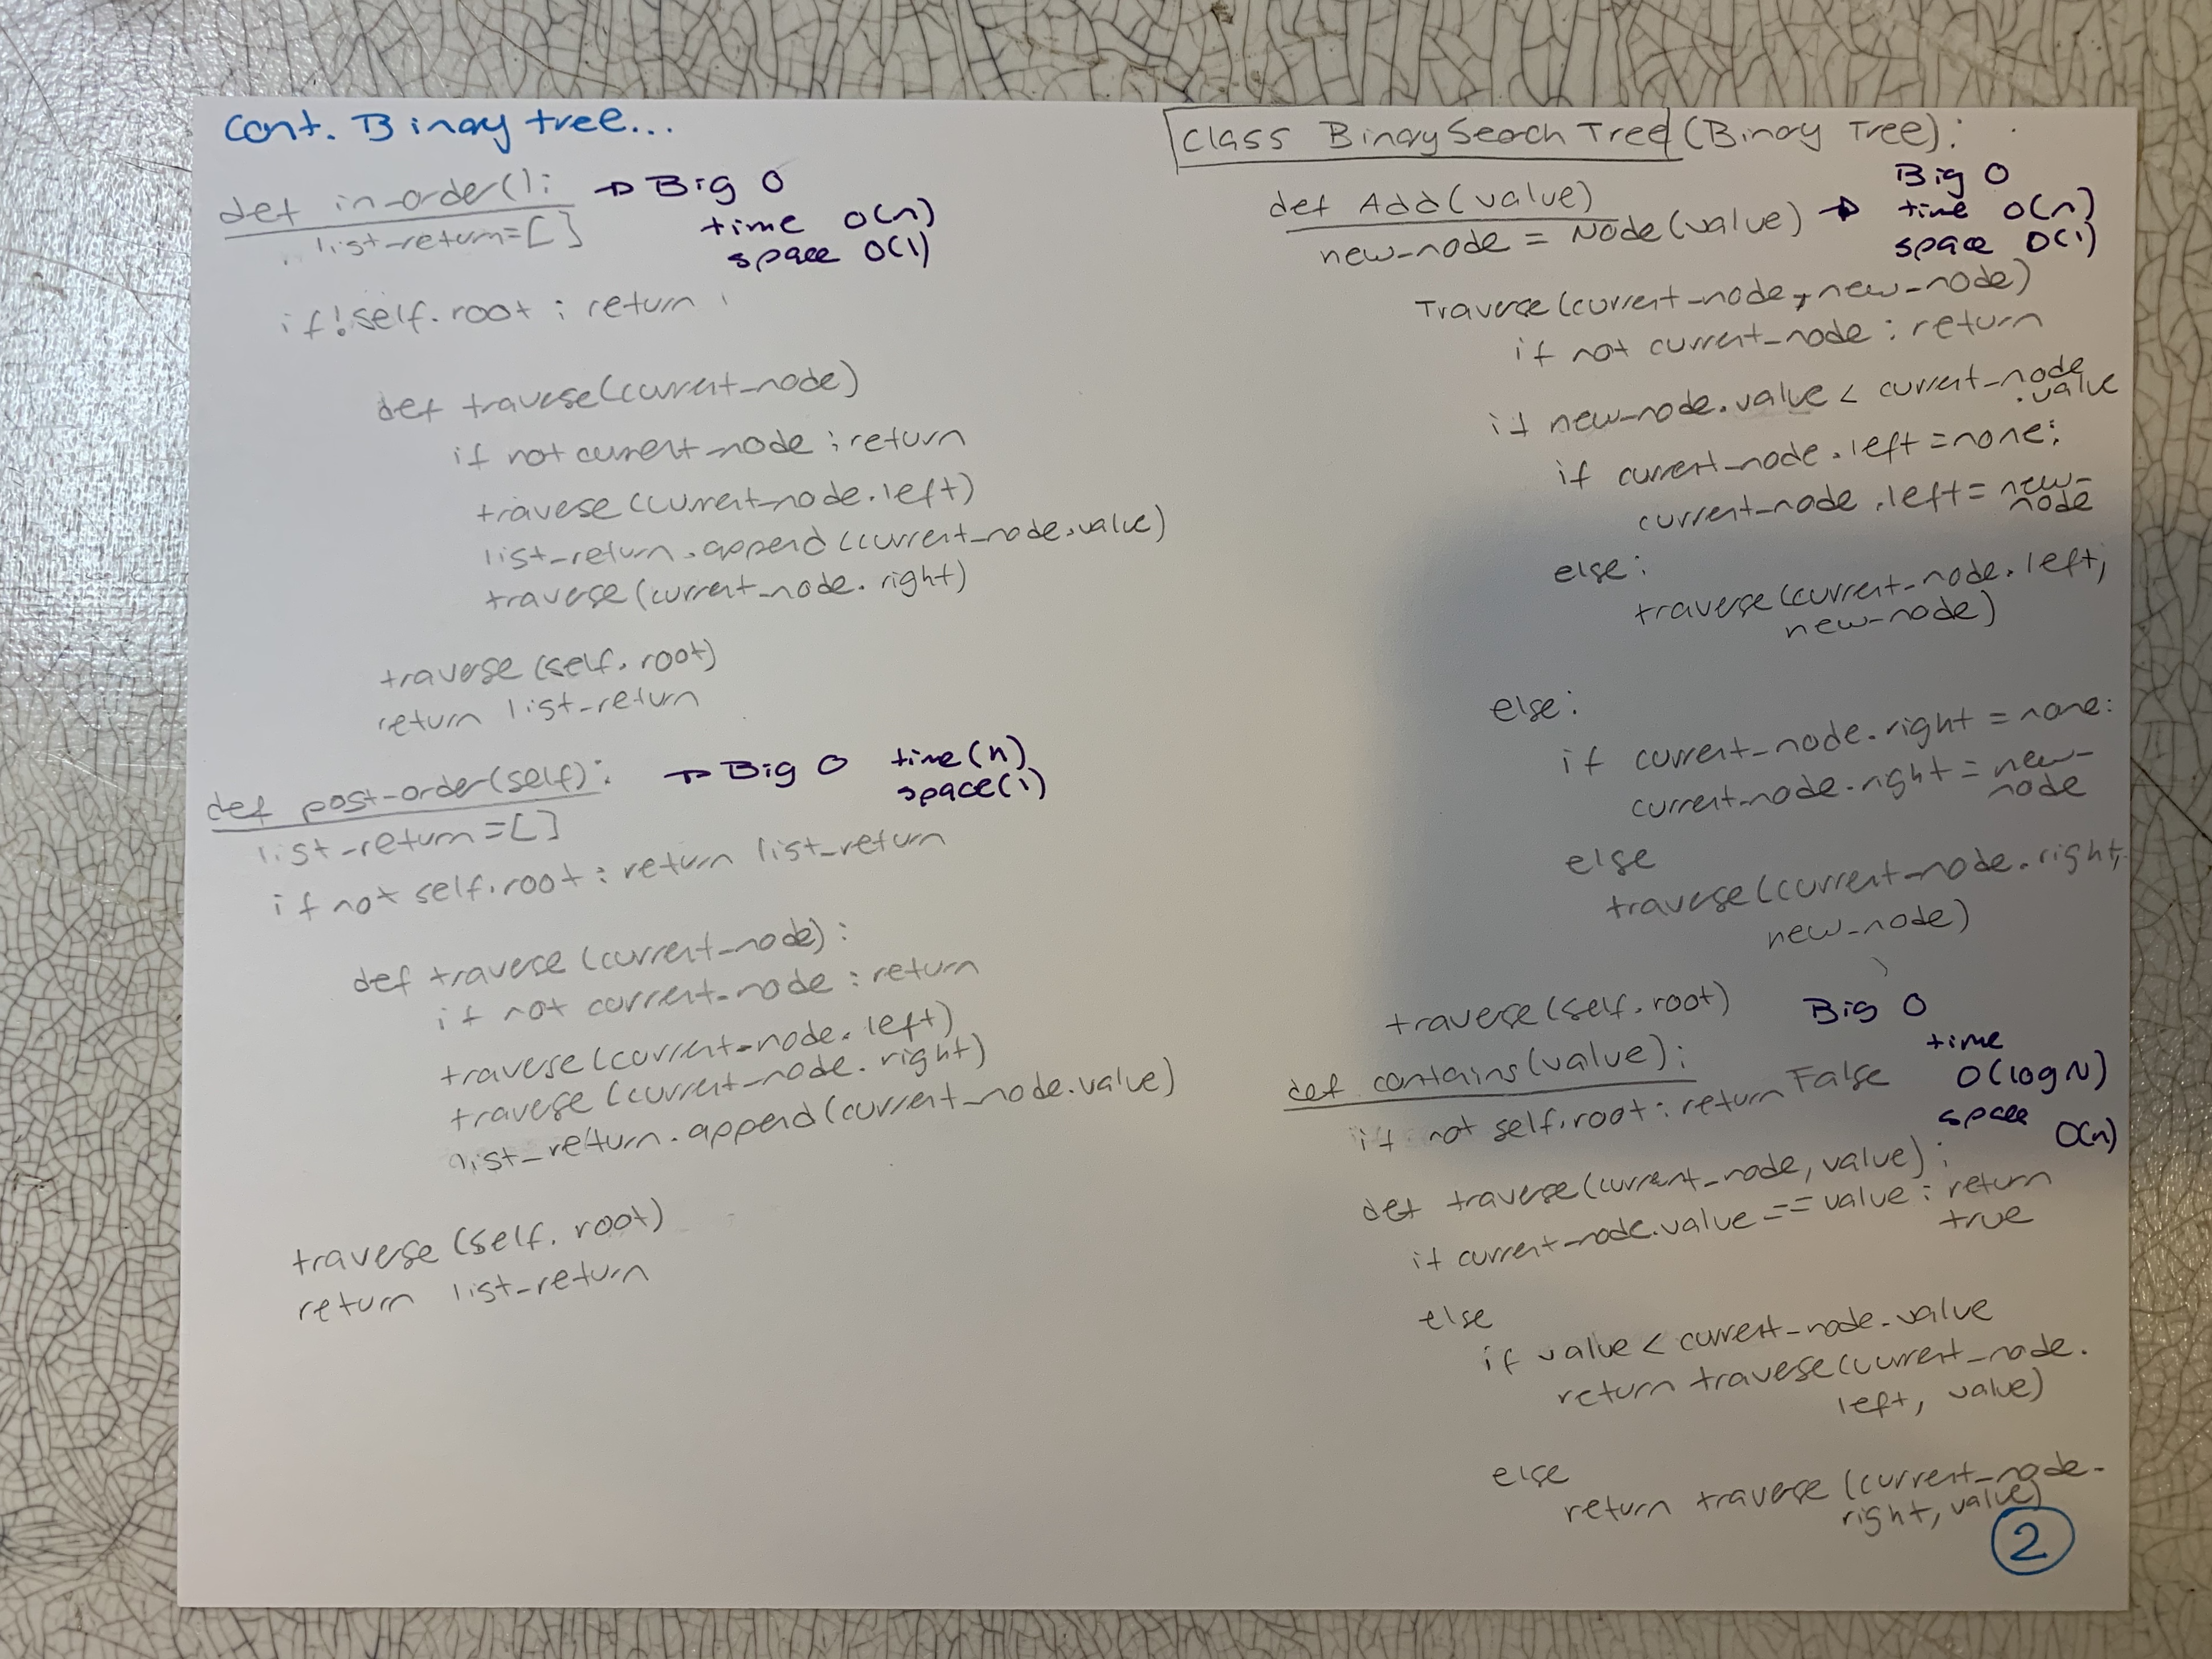 Cont. Binary tree...
def in-order():
→ Big O
time O(n)
space O(1)
list-return=[]
if!self.root : return
def travese(current_node)
if not current_node : return
travese(current_node.left)
list_return.append(current_node.value)
travese(current_node.right)
traverse(self.root)
return list_return
def post-order(self):
→ Big O time(n)
space(1)
list-return=[]
if not self.root : return list_return
def travese(current_node):
if not current_node : return
traverse(current_node.left)
travese(current_node.right)
list_return.append(current_node.value)
traverse(self.root)
return list_return
Class Binary Search Tree (Binary Tree):
def Add(value)
new_node = Node(value) →
Big O
time O(n)
space O(1)
Traverse(current_node, new_node)
if not current_node : return
if new_node.value < current_node
.value
if current_node.left = none:
current_node.left = new-
node
else:
traverse(current_node.left,
new_node)
else:
if current_node.right = none:
current_node.right = new-
node
else
traverse(current_node.right,
new_node)
traverse(self.root)
Big O
time
O(log N)
space
O(n)
def contains(value):
if not self.root : return False
def traverse(current_node, value):
if current_node.value == value : return
true
else
if value < current_node.value
return traverse(current_node.
left, value)
else
return traverse (current_node.
right, value)
2